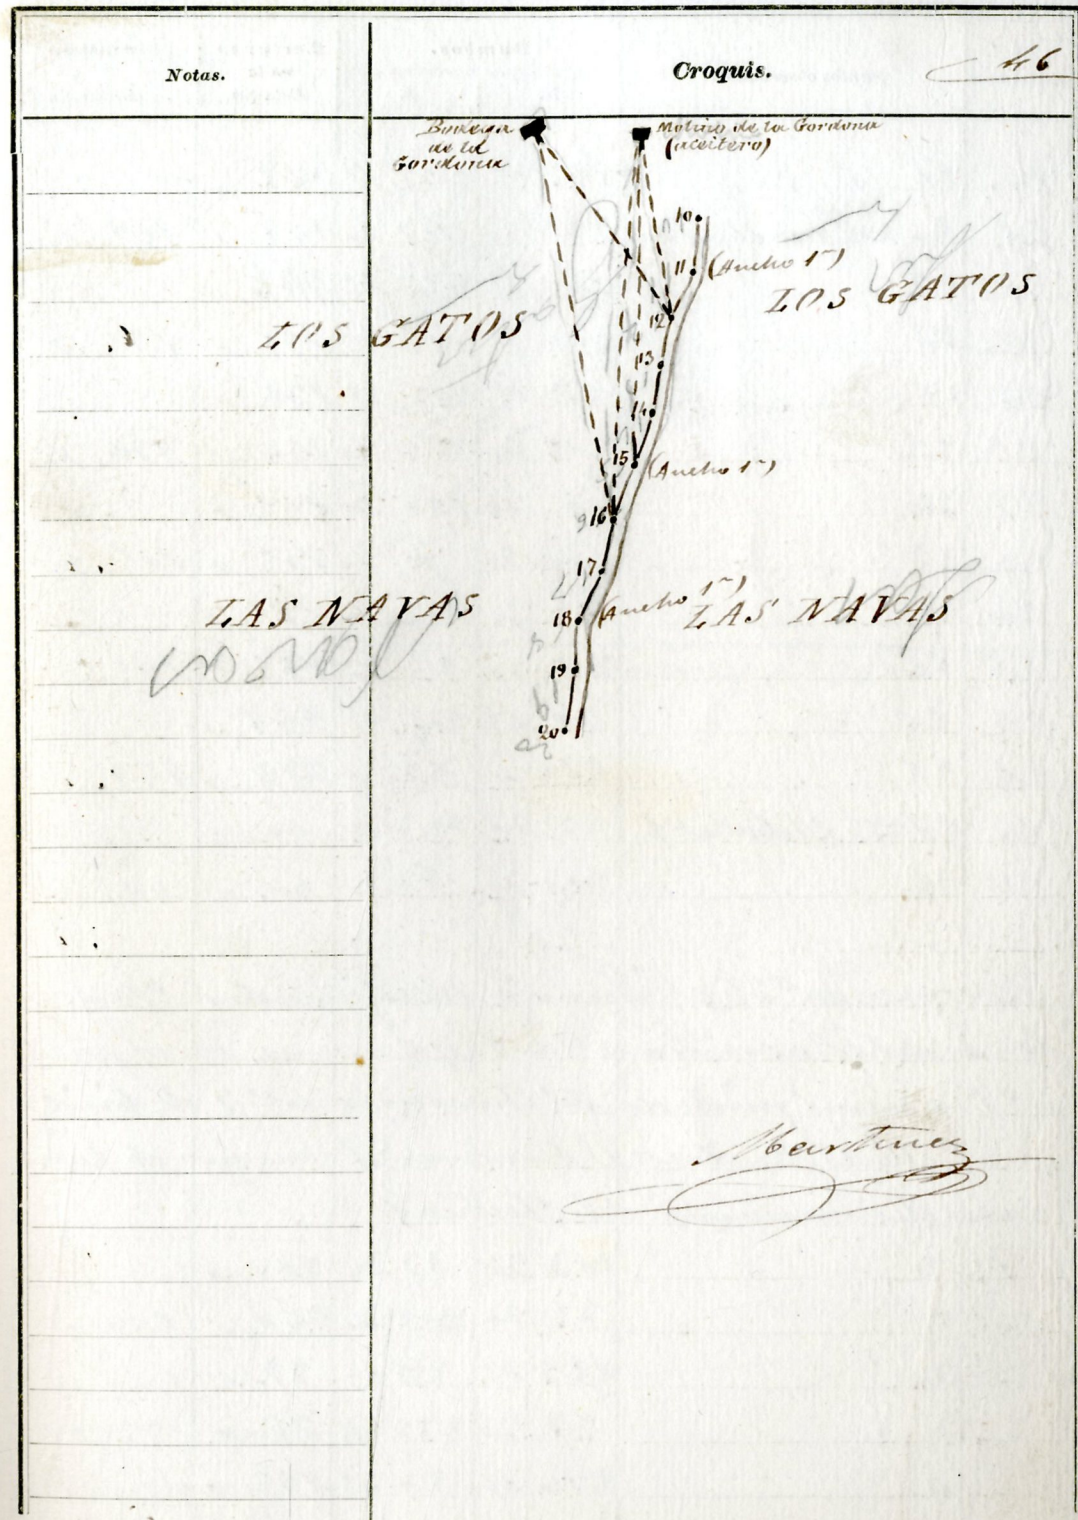 Notas.
Croquis.
46
Bodega
de la
Gordona
Molino de la Gordona
(aceitero)
10
11 (Ancho 1m)
LOS GATOS
LOS GATOS
12
13
14
15 (Ancho 1m)
16
17
LAS NAVAS
18 (Ancho 1m)
LAS NAVAS
19
20
Martinez